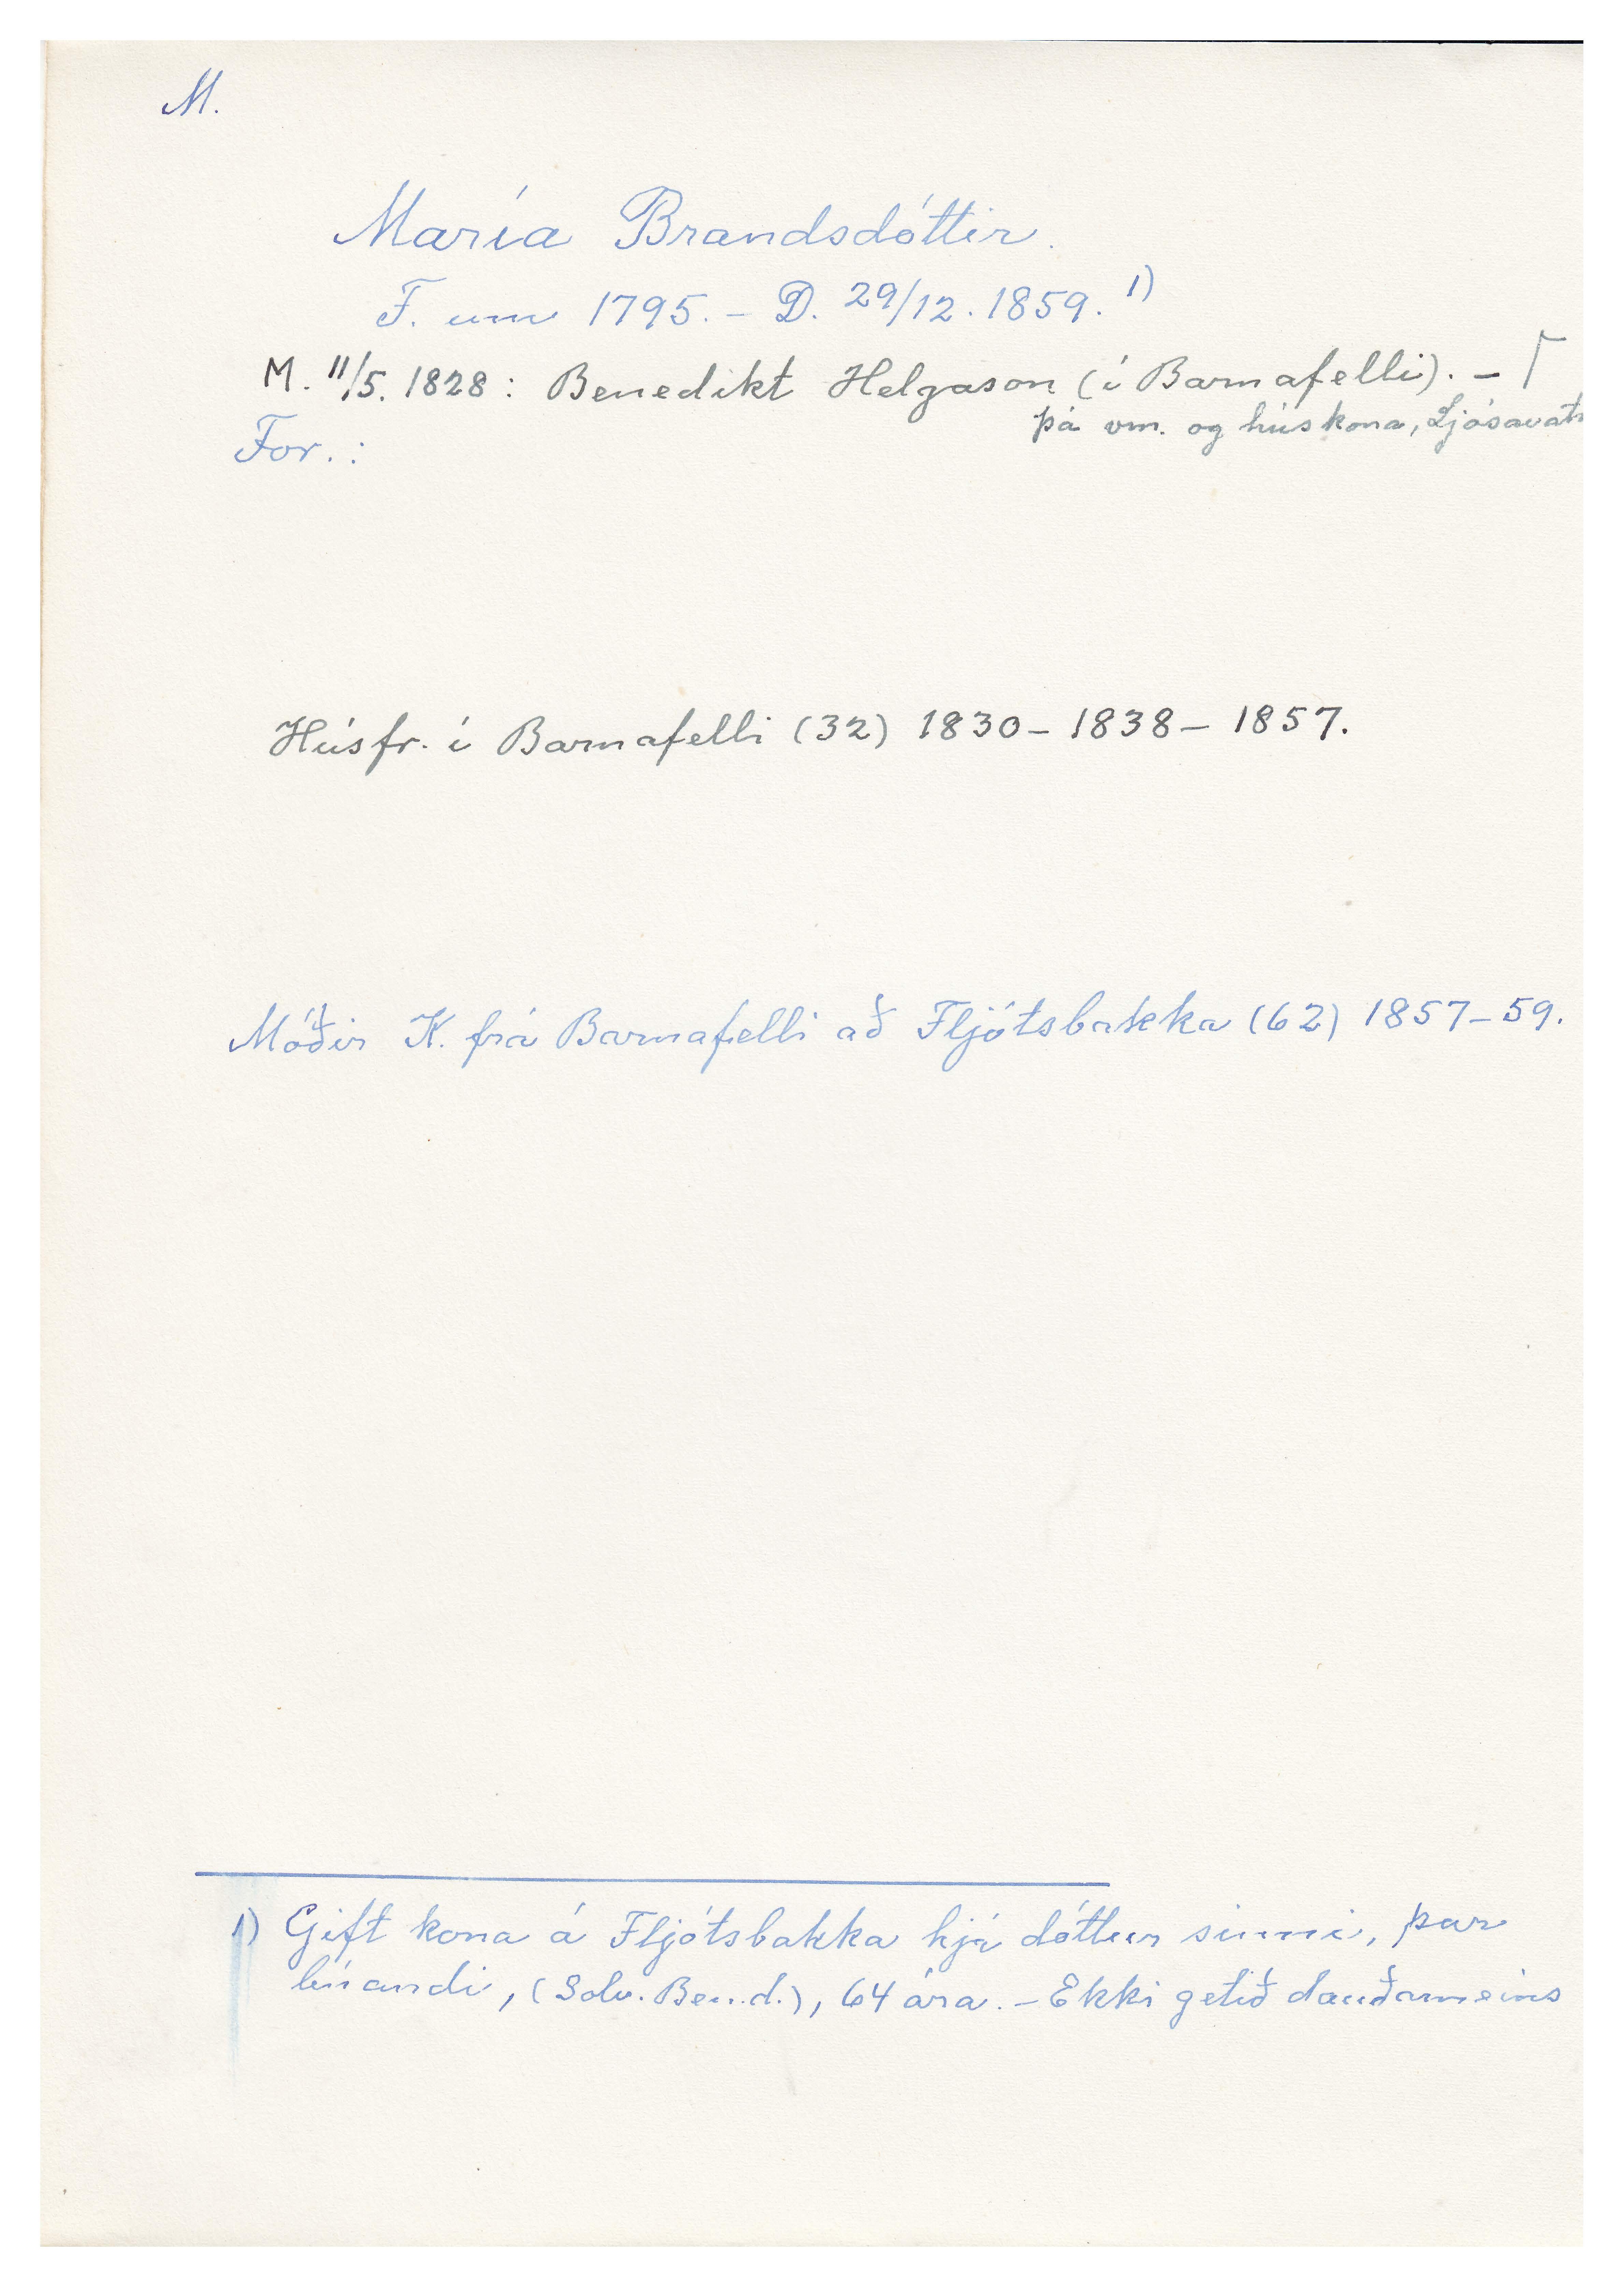 M.
María Brandsdóttir.
F. um 1795. – D. 29/12. 1859. 1)
M. 11/5. 1828 : Benedikt Helgason (í Barnafelli). – ⌈
þá vm. og húskona, Ljósavatn
For. :
Húsfr. í Barnafelli (32) 1830 – 1838 – 1857.
Móðir K. frá Barnafelli að Fljótsbakka (62) 1857–59.
1) Gift kona á Fljótsbakka hjá dóttur sinni, þar
búandi, (Solv. Ben.d.), 64 ára. – Ekki getið dauðameins